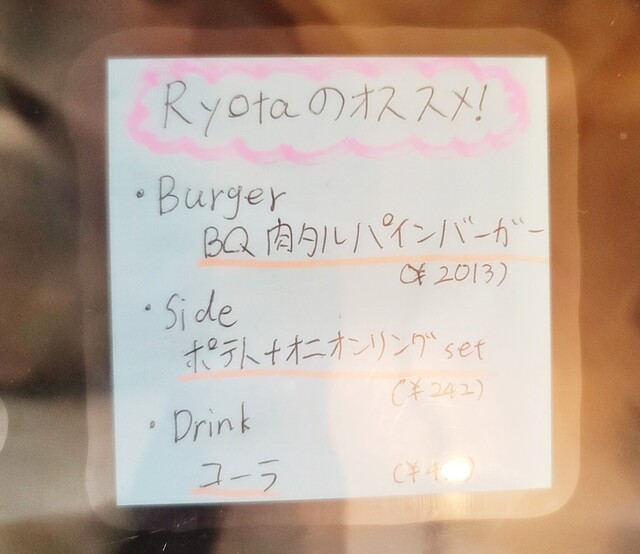 Ryotaのオススメ!
・Burger
BQ肉タルパインバーガー
(¥2013)
・Side
ポテト+オニオンリングset
(¥242)
・Drink
コーラ